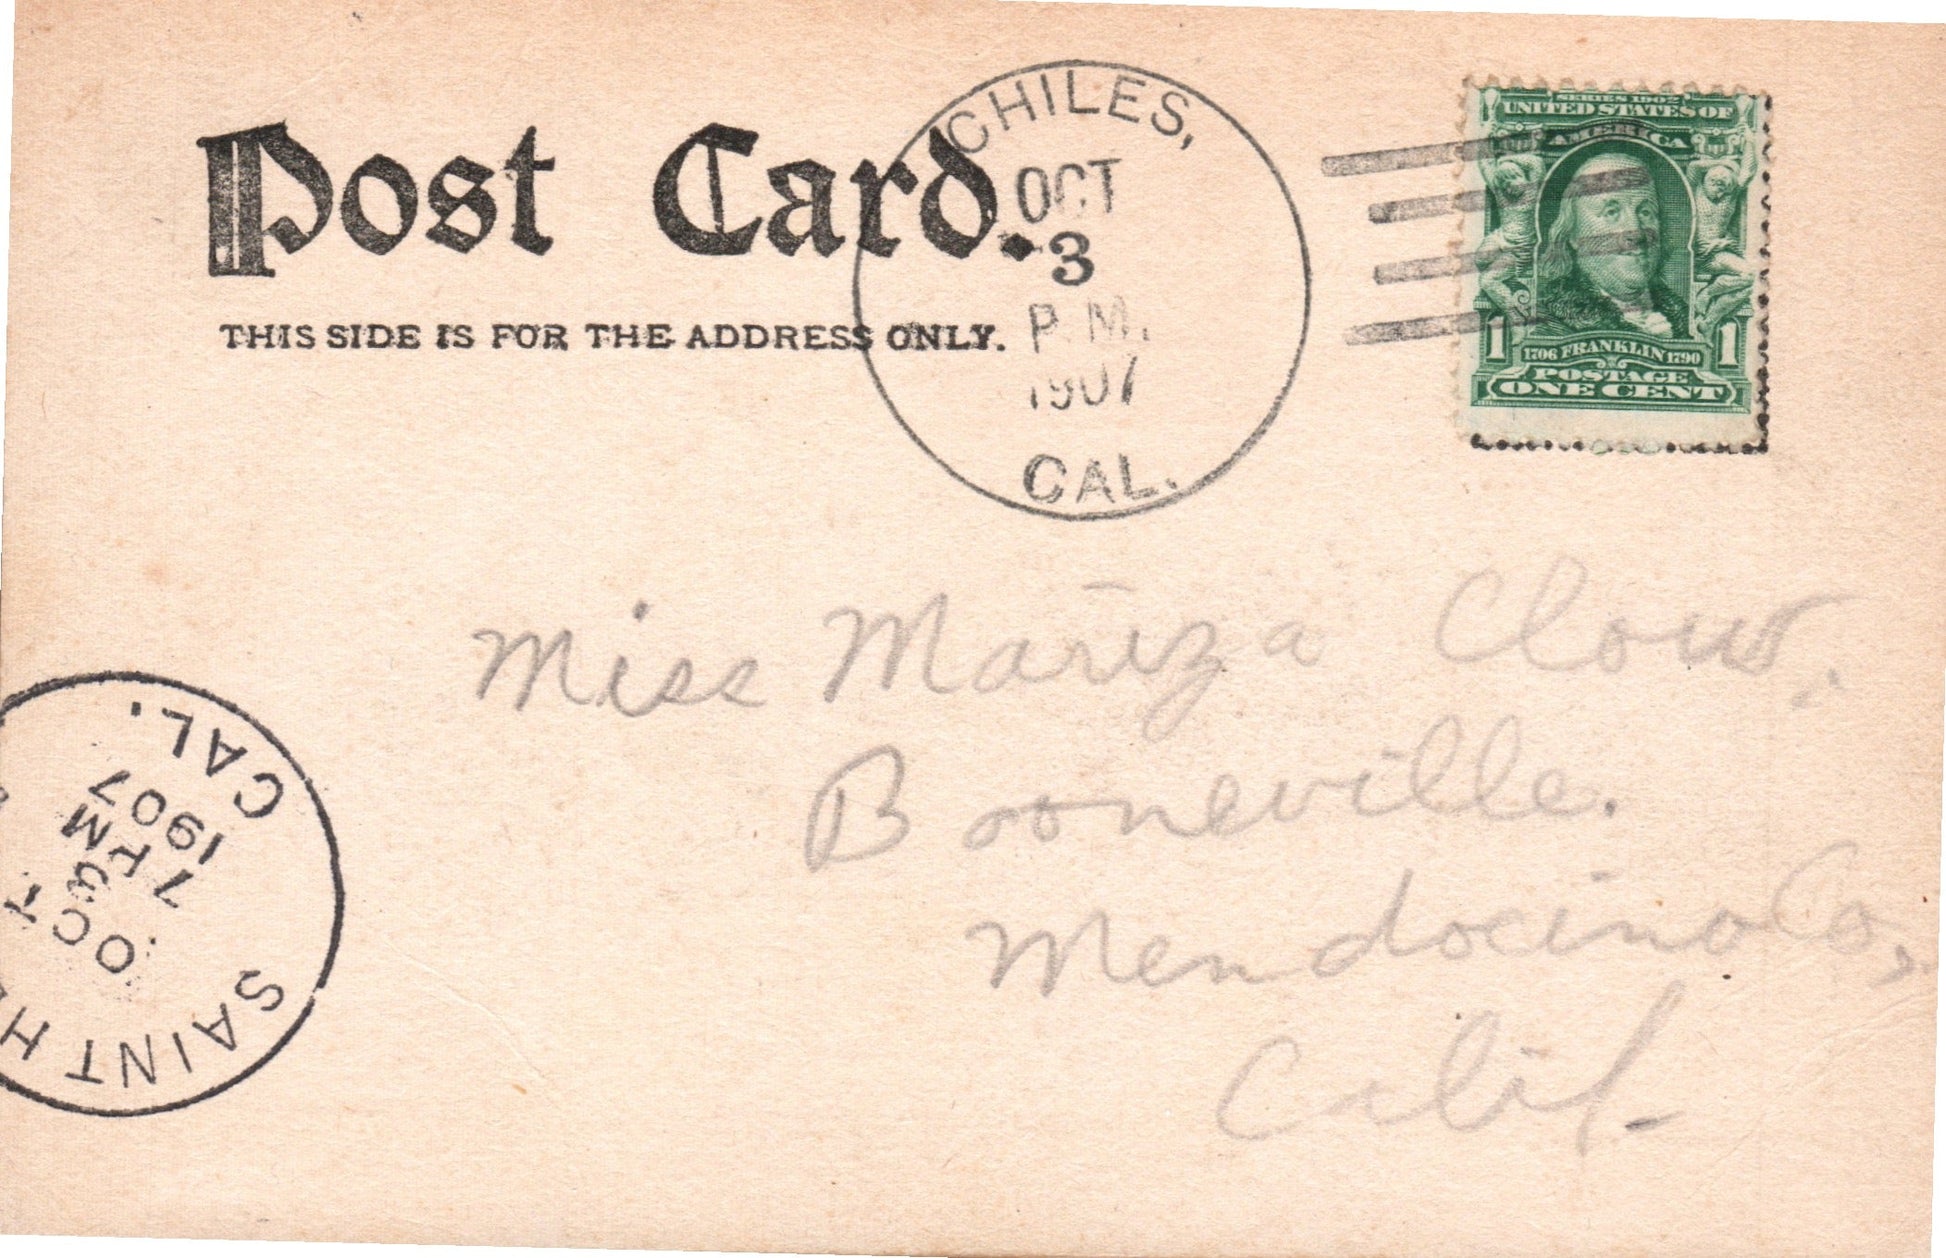 Post Card.
THIS SIDE IS FOR THE ADDRESS ONLY.
CHILES,
OCT
3
P.M.
1907
CAL.
SERIES 1902
UNITED STATES OF
AMERICA
1706 FRANKLIN 1790
1 1
POSTAGE
ONE CENT
Miss Mariza Clow,
Booneville.
Mendocino Co,
Calif.
SAINT H
OCT
7
1907
CAL.